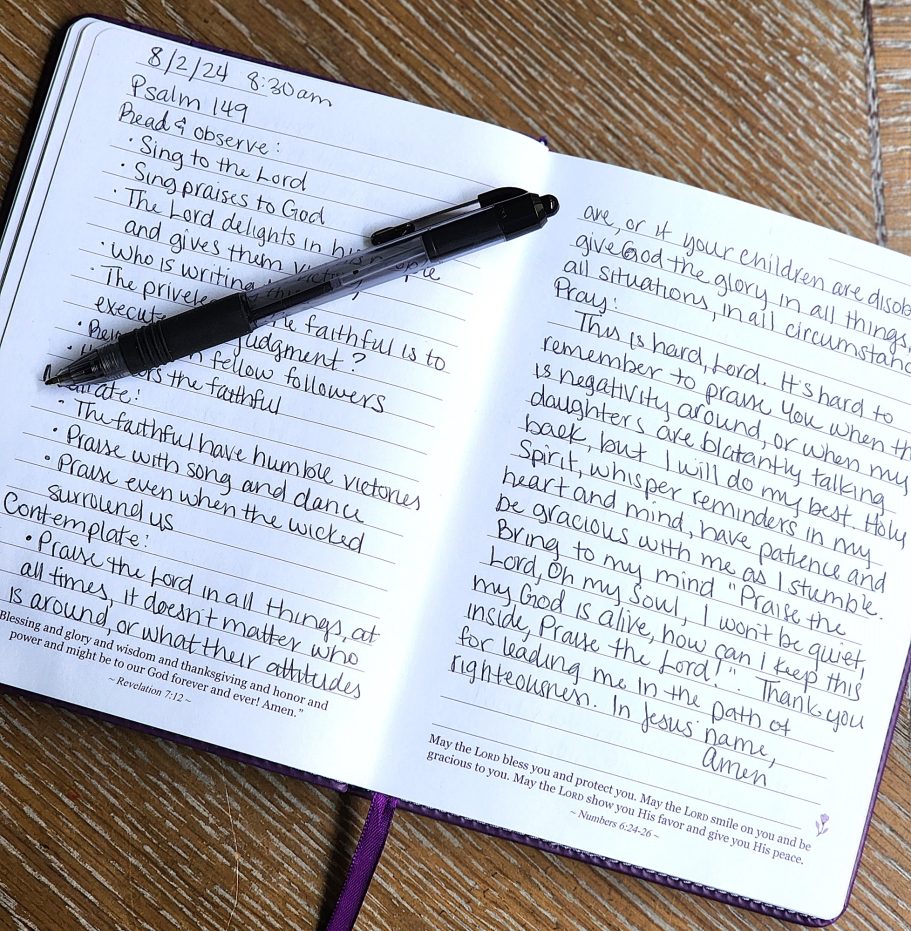 8/2/24 8:30am
Psalm 149
Read & observe:
• Sing to the Lord
• Sing praises to God
• The Lord delights in his
and gives them
• Who is writing
• The
execute judgment?
the faithful is to
fellow followers
the faithful
• The faithful have humble victories
• Praise with song and dance
• Praise even when the wicked
surround us
Contemplate:
• Praise the Lord in all things, at
all times, it doesn't matter who
is around, or what their attitudes
Blessing and glory and wisdom and thanksgiving and honor and
power and might be to our God forever and ever! Amen."
~ Revelation 7:12 ~
are, or if your children are
give God the glory in all things,
all situations, in all
Pray:
This is hard, Lord. It's hard to
remember to praise you when
is negativity around, or when my
daughters are blatantly talking
back, but I will do my best. Holy
Spirit, whisper reminders in my
heart and mind, have patience and
be gracious with me as I stumble.
Bring to my mind "Praise the
Lord, Oh my Soul, I won't be quiet,
my God is alive, how can I keep this
inside, Praise the Lord!". Thank you
for leading me in the path of
righteousness. In Jesus name,
Amen
May the LORD bless you and protect you. May the LORD smile on you and be
gracious to you. May the LORD show you His favor and give you His peace.
~ Numbers 6:24-26 ~